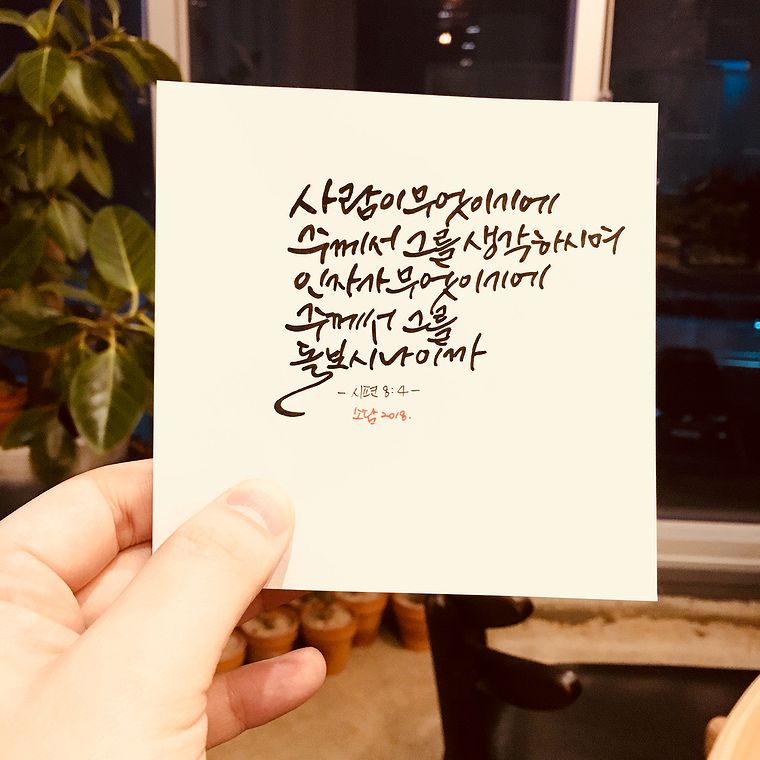 사람이 무엇이기에
주께서 그를 생각하시며
인자가 무엇이기에
주께서 그를
돌보시나이까
- 시편 8:4 -
소담 2018.